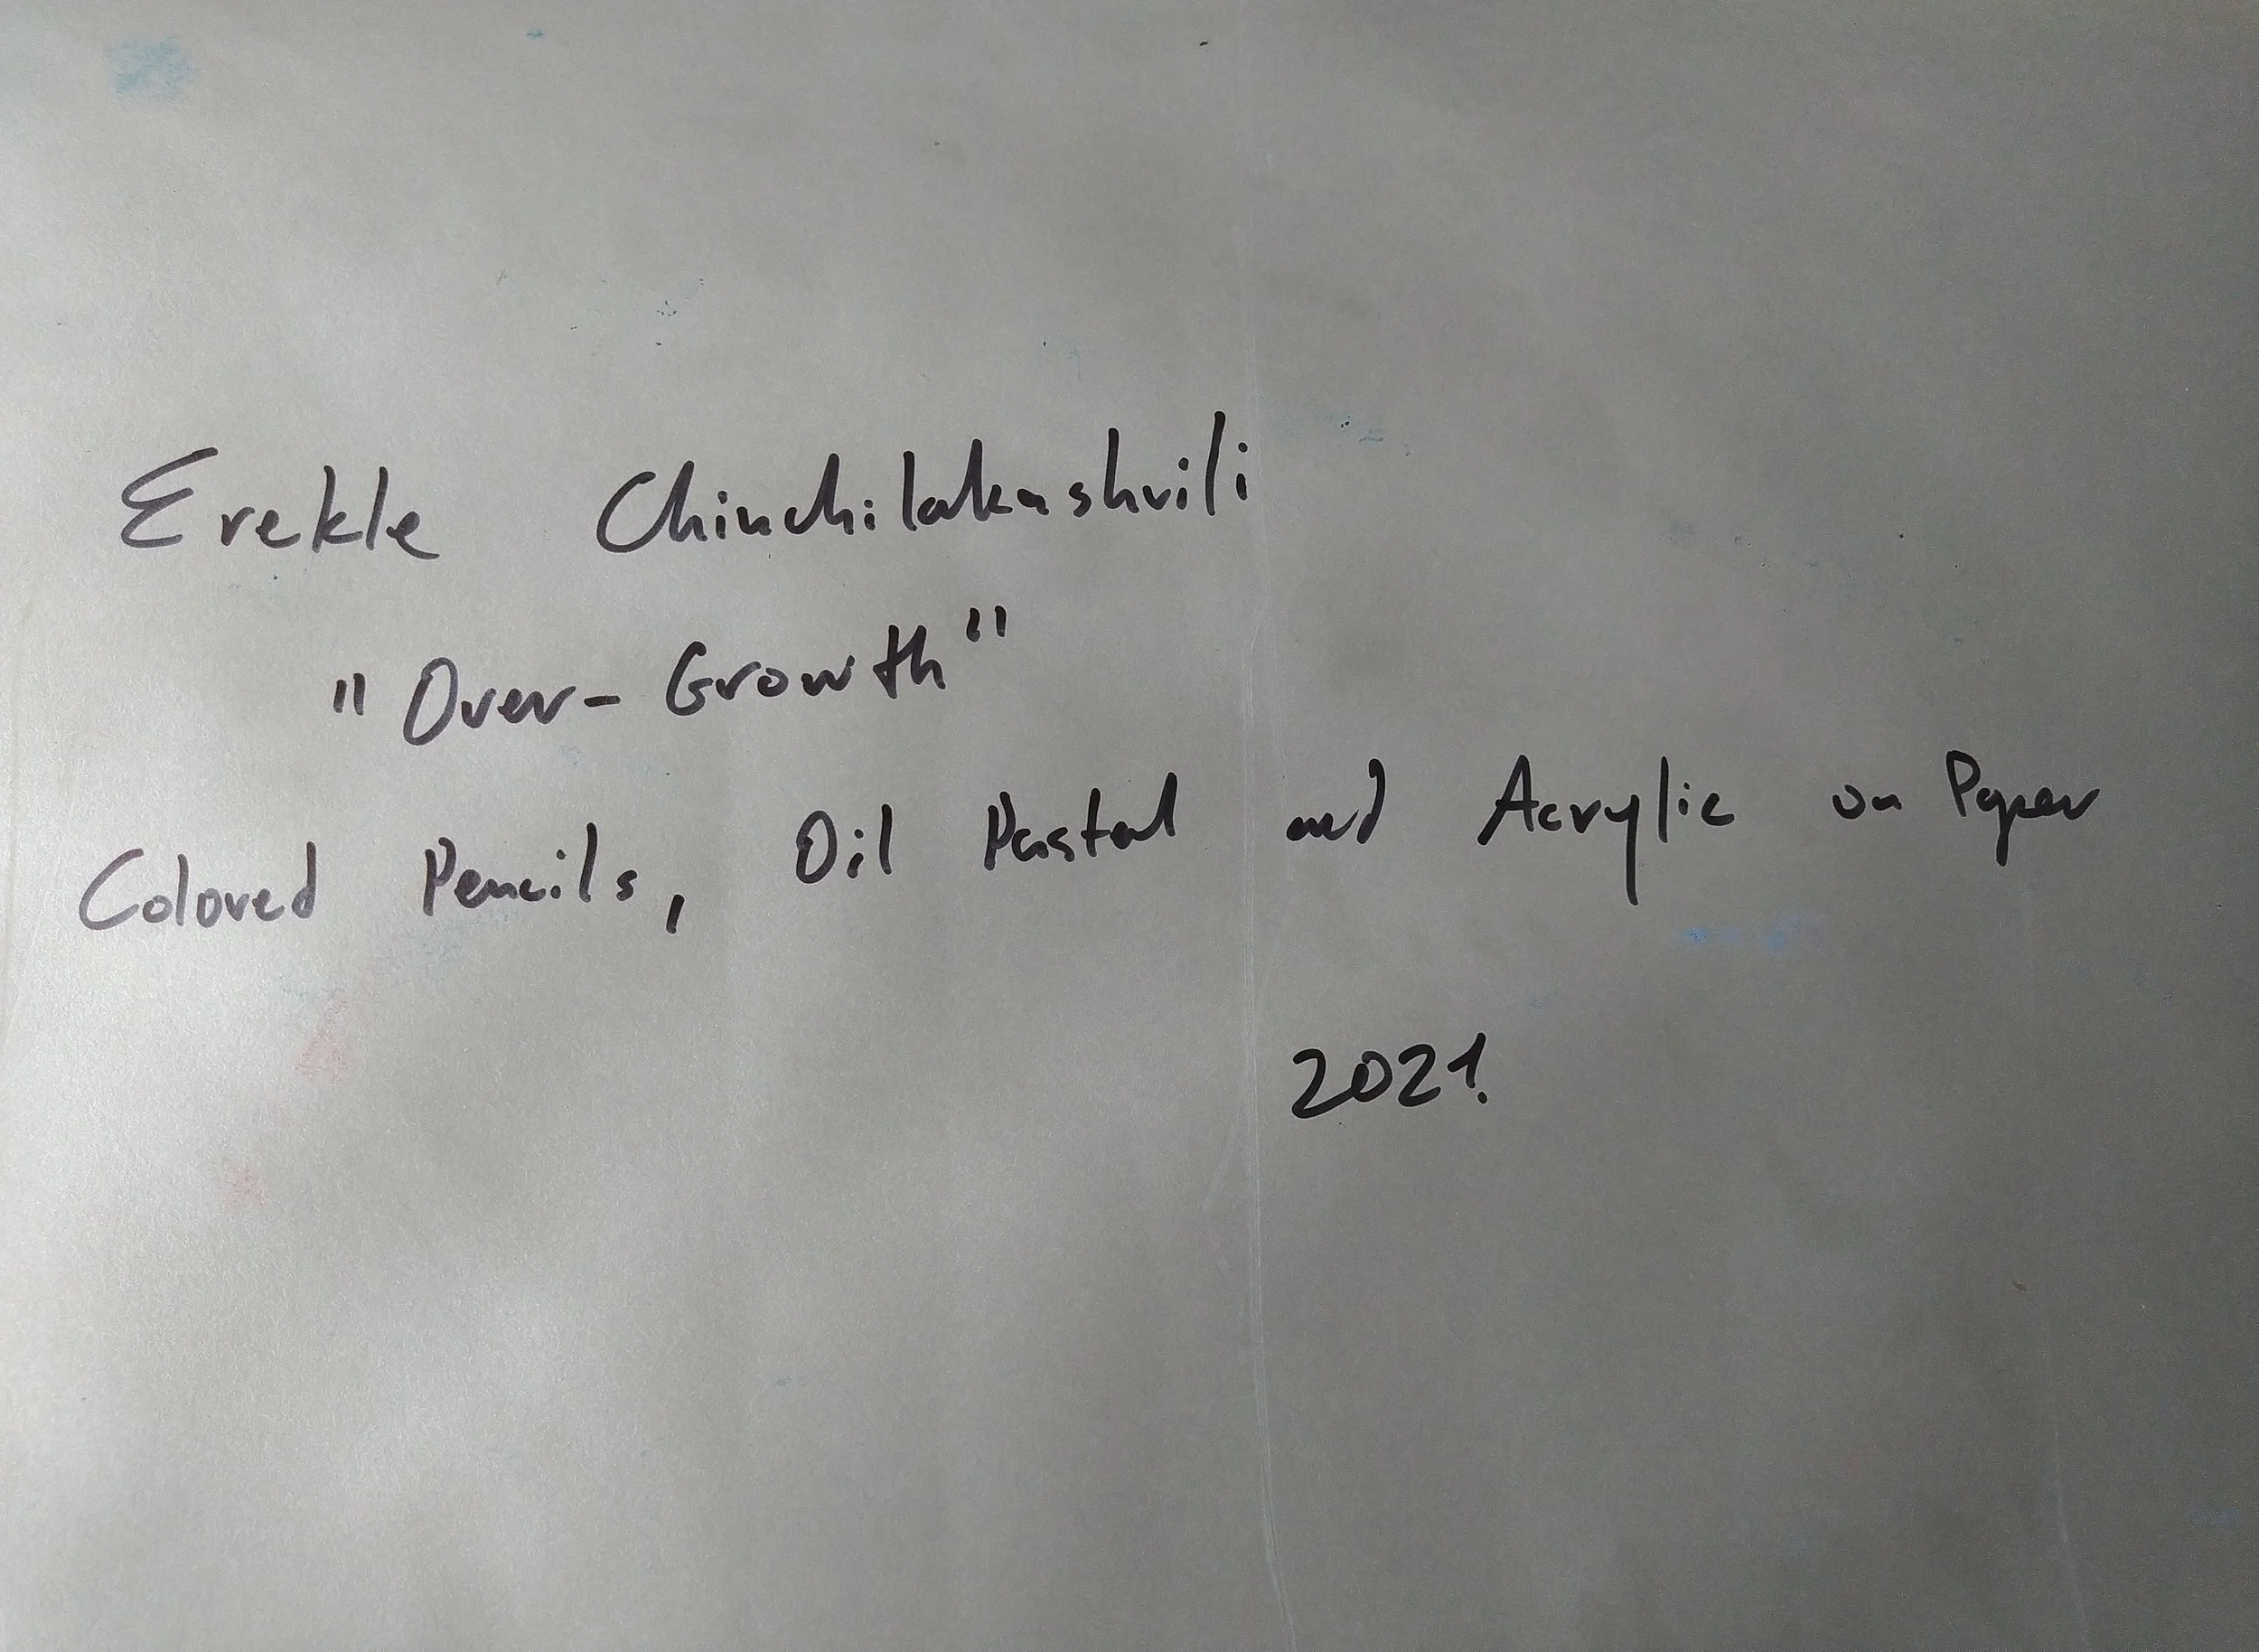 Erekle Chinchilakashvili
"Over-Growth"
Colored Pencils, Oil Pastel and Acrylic on Paper
2021.